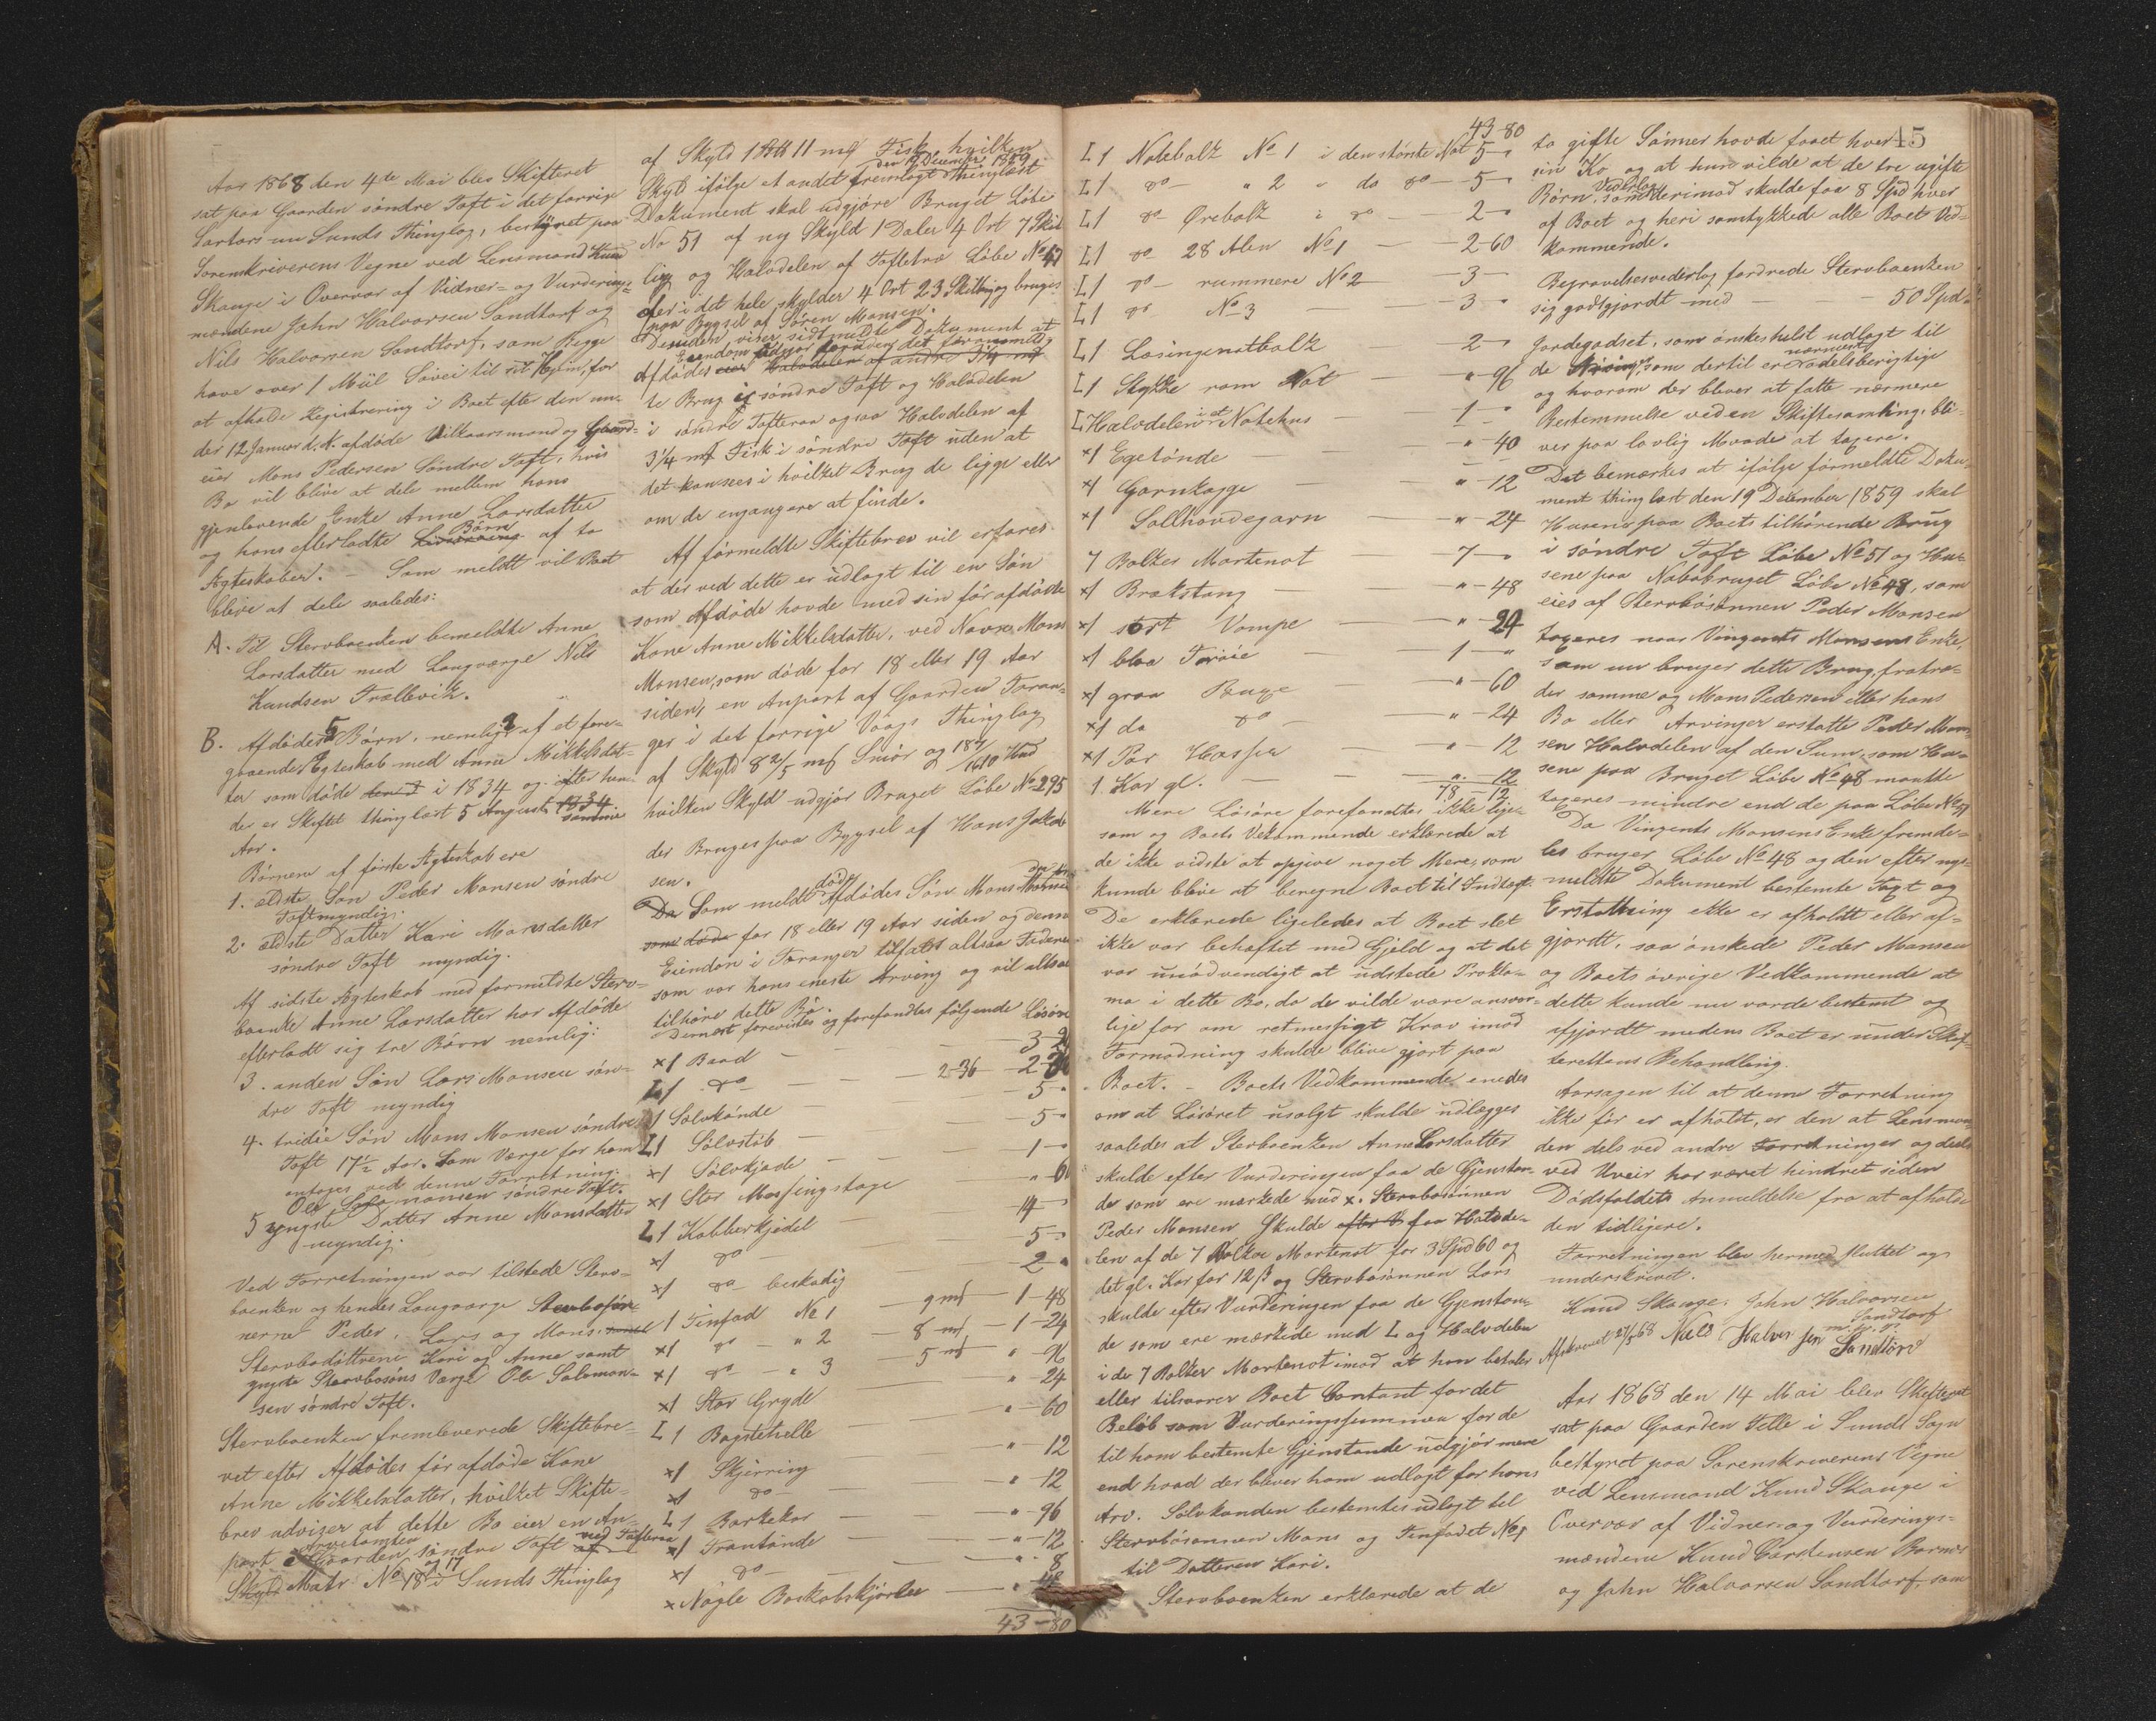 Aar 1868 den 4de Mai blev Skifteret
sat paa Gaarden söndre Toft i det forrige
Sartors nu Sunds Thinglag, bestyret paa
Sorenskriverens Vegne ved Lensmand Knud
Skauge i Overvær af Vidner- og Vurderings-
mændene John Halvorsen Sandtorf og
Nils Halvorsen Sandtorf, som Begge
have over 1 Miil Söivei til sit Hjem, for
at afholde Registrering i Boet efter den un-
der 12 Januar d. A. afdöde Vilkaarsmand og Gaard-
eier Mons Pedersen Söndre Toft, hvis
Bo vil blive at dele mellem hans
gjenlevende Enke Anne Larsdatter
og hans efterladte Börn af to
Ægteskaber. - Som meldt vil Boet
blive at dele saaledes:
A. Til Stervboenken bemeldte Anne
Larsdatter med Laugværge Nils
Knudsen Trællevik.
B. Afdödes 5 Börn, nemlig 2 af et fore-
gaaende Egteskab med Anne Mikkelsdat-
ter som döde i 1834 og efter hen-
de er Skiftet thinglæst 5 August samme
Aar.
Börnene af förste Ægteskab ere
1. ældste Sön Peder Monsen söndre
Toft myndig.
2. ældste Datter Kari Monsdatter
söndre Toft myndig.
Af sidste Ægteskab med formeldte Sterv-
boenke Anne Larsdatter har Afdöde
efterladt sig tre Börn nemlig:
3. anden Sön Lars Monsen sön-
dre Toft myndig
4. tridie Sön Mons Monsen söndre
Toft 17½ Aar. Som Værge for ham
antages ved denne Forretning:
Ole Salomonsen söndre Toft.
5 yngste Datter Anne Monsdatter
myndig.
Ved Forretningen var tilstede Sterv-
boenken og hendes Laugværge Stervbosön-
nerne Peder, Lars og Mons
Stervbodöttrene Kari og Anne samt
yngste Stervbosöns Værge Ole Salomon-
sen söndre Toft.
Stervboenken fremleverede Skiftebre-
vet efter Afdödes för afdöde Kone
Anne Mikkelsdatter, hvilket Skifte-
brev udviser at dette Bo eier en An-
part i Gaarden söndre Toft med Tofteraa
Matr. No 18 og 17 i Sunds Thinglag
af Skyld 1 11 mf Fisk, hvilken
den 19 December 1859
Skyld ifölge et andet fremlagt Thinglæst
Dokument skal udgjöre Bruget Löbe
No 51 af ny Skyld 1 Daler 4 Ort 7 Skil
ling og Halvdelen af Löbe No 47
der i det hele skylder 4 Ort 23 Skilling og bruges
paa Bygsel af Sören Monsen.
Desuden viser sidtmeldte Dokument at
Afdödes Eiendom
te Brug i söndre Toft og Halvdelen
i söndre Tofteraa ogsaa Halvdelen af
3¼ mf Fisk i söndre Toft uden at
det kan sees i hvilket Brug de ligge eller
om de engang ere at finde.
Af förmeldte Skiftebrev vil erfares
at der ved dette er udlagt til en Sön
som Afdöde havde med sin för afdöde
Kone Anne Mikkelsdatter, ved Navn Mons
Monsen, som döde for 18 eller 19 Aar
siden, en Anpart af Gaarden Toran-
ger i det forrige Vaags Thinglag
af Skyld 8 2/5 mf Smör og Hud
hvilken Skyld udgjör Bruget Löbe No 295
der Bruges paa Bygsel af Hans Jakob
sen.
Som meldt döde Afdödes Sön Mons Monsen
for 18 eller 19 Aar siden og denne
Eiendom i Toranger tilfaldt altsaa Faderen
som var hans eneste Arving og vil altsaa
tilhöre dette Bo.
Dernæst forevistes og forefandtes fölgende Lösöre
x1 Baad - 3 -
L1 do - 2-36
1 Sölvkande - 5 -
L1 Sölvstöb - 5 -
x1 Sölvkjæde - 1 -
x1 Stor Messingstage
L1 Kobberkjedel - 14 -
x1 do - 5 -
x1 do beskadig - 2 -
1 Tinfad No 1 - 9 mf - 1-48
x1 do - " 2 - 8 mf - 1-24
x1 do - " 3 - 5 mf " 96
x1 Stor Gryde " 24
L1 Bagstehelle " 60
x1 Skjærring " - 12
x1 do - " - 12
L1 Barkekar " - 96
x1 Trantönde " - 12
x1 do - " - 8
x Nogle Boskabskjörler
43-80
45
43-80
L1 Notebalk No 1 i den störste Not 5 -
L1 do - " 2 " do do - 5 -
L1 do Örebalk i do - 2 -
L1 do 28 Alen No 1 - 2-60
L1 do - rummere No 2 - 3 -
L1 do No 3 - 3 -
L1 Losingenotbalk - 2 -
L1 Stykke ram Not " - 96
L Halvdelen i et Notehus - 1 -
x1 Egetönde " 40
x1 Garnkagge " - 12
x1 Sallhovdegarn " - 24
7 Bolker Mortenot - 7 -
x1 Brækstang " - 48
x1 stort Vompe " - 24
x1 blaa Tröie - 1 - "
x1 graa Buxe " - 60
x1 do do - " - 24
x1 Par Haspa " - 12
1 Kar gl. " - 12
78 - 12
Mere Lösöre forefandtes ikke lige-
som og Boets Vekommende erklærede at
de ikke vidste at opgive noget Mere, som
kunde blive at beregne Boet til Indtægt.
De erklærede ligeledes at Boet slet
ikke var behæftet med Gjeld og at det
var unödvendigt at udstede Prokla-
ma i dette Bo, da de vilde være ansvar-
lige for om retmæssigt Krav imod
Formodning skulde blive gjort paa
Boet. - Boets Vedkommende enedes
om at Lösöret usolgt skulde udlægges
saaledes at Sterboenken Anne Larsdatter
skulde efter Vurderingen faa de Gjenstan-
de som ere mærkede med x. Stervbosönnen
Peder Monsen Skulde faa Halvde-
len af de 7 Bolker Mortenot for 3 Spd 60 og
det gl. Kar for 12 ß og Stervbosönnen Lars
skulde efter Vurderingen faa de Gjenstan-
de som ere mærkede med L og Halvdelen
i de 7 Bolker Mortenot imod at han betaler
eller tilsvarer Boet Contant for det
Belöb som Vurderingssummen for de
til ham bestemte Gjenstande udgjör mere
end hvad der bliver ham udlagt for hans
Arv. Sölvkanden bestemtes udlagt til
Stervbosönnen Mons og Tinfadet No 1
til Datteren Kari.
Stervboenken erklærede at de
to gifte Sönner havde faaet hver
sin Ko og at hun vilde at de tre ugifte
Börn som Vederlag derimod skulde faa 8 Spd hver
af Boet og heri samtykkede alle Boets Ved-
kommende.
Begravelsesvederlag fordrede Stervboenken
sig godtgjordt med - - 50 Spd
Jordegodset, som önskes helst udlagt til
de som dertil er nærmest odelsberigtige
og hvorom der bliver at fatte nærmere
Bestemmelse ved en Skiftesamling, bli-
ver paa lovlig Maade at taxere.
Det bemærkes at ifölge förmeldte Doku-
ment thinglæst den 19 December 1859 skal
Husene paa Boets tilhörende Brug
i söndre Toft Löbe No 51 og Hu-
sene paa Nabobruget Löbe No 48, som
eies af Stervbosönnen Peder Monsen
taxeres naar Vingents Monsens Enke,
som nu bruger dette Brug, fratræ-
der samme og Mons Pedersen eller hans
Bo eller Arvinger erstatte Peder Mon-
sen Halvdelen af den Sum, som Hu-
sene paa Bruget Löbe No 48 maatte
taxeres mindre end de paa Löbe No 51
Da Vingents Monsens Enke fremde-
les bruger Löbe No 48 og den efter nys-
meldte Dokument bestemte Taxt og
Erstatning ikke er afholdt eller af-
gjordt, saa önskede Peder Monsen
og Boets övrige Vedkommende at
dette kunde nu vorde bestemt og
afgjordt medens Boet er under Skif-
terettens Behandling.
Aarsagen til at denne Forretning
ikke för er afholdt, er den at Lensman-
den dels ved andre Forretninger og dels
ved Uveir har været hindret siden
Dödsfaldets Anmeldelse fra at afholde
den tidligere.
Forretningen blev hermed sluttet og
underskrevet.
Knud Skauge. John Halvorsen
Sandtorf
m. f. P.
Afskrevet 27/5 68 Niels Halvor sen Sandtorv
Aar 1868 den 14 Mai blev Skifteret
sat paa Gaarden Telle i Sunds Sogn
bestyret paa Sorenskriverens Vegne
ved Lensmand Knud Skauge i
Overvær af Vidner- og Vurderings-
mændene Knud Carstensen Barnes
og John Halvorsen Sandtorf, som